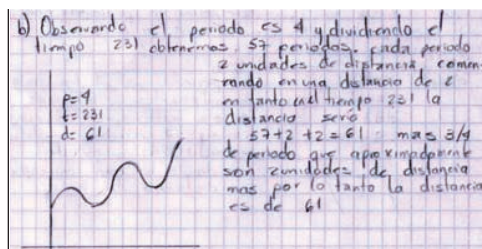 b) Observando el periodo es 4 y dividiendo el
tiempo 231 obtenemos 57 periodos. cada periodo
2 unidades de distancia comen-
zando en una distancia de 2
en tanto en el tiempo 231 la
distancia será
57+2+2=61 mas 3/4
de periodo que aproximadamente
son 2 unidades de distancia
mas por lo tanto la distancia
es de 61
p=4
t=231
d=61